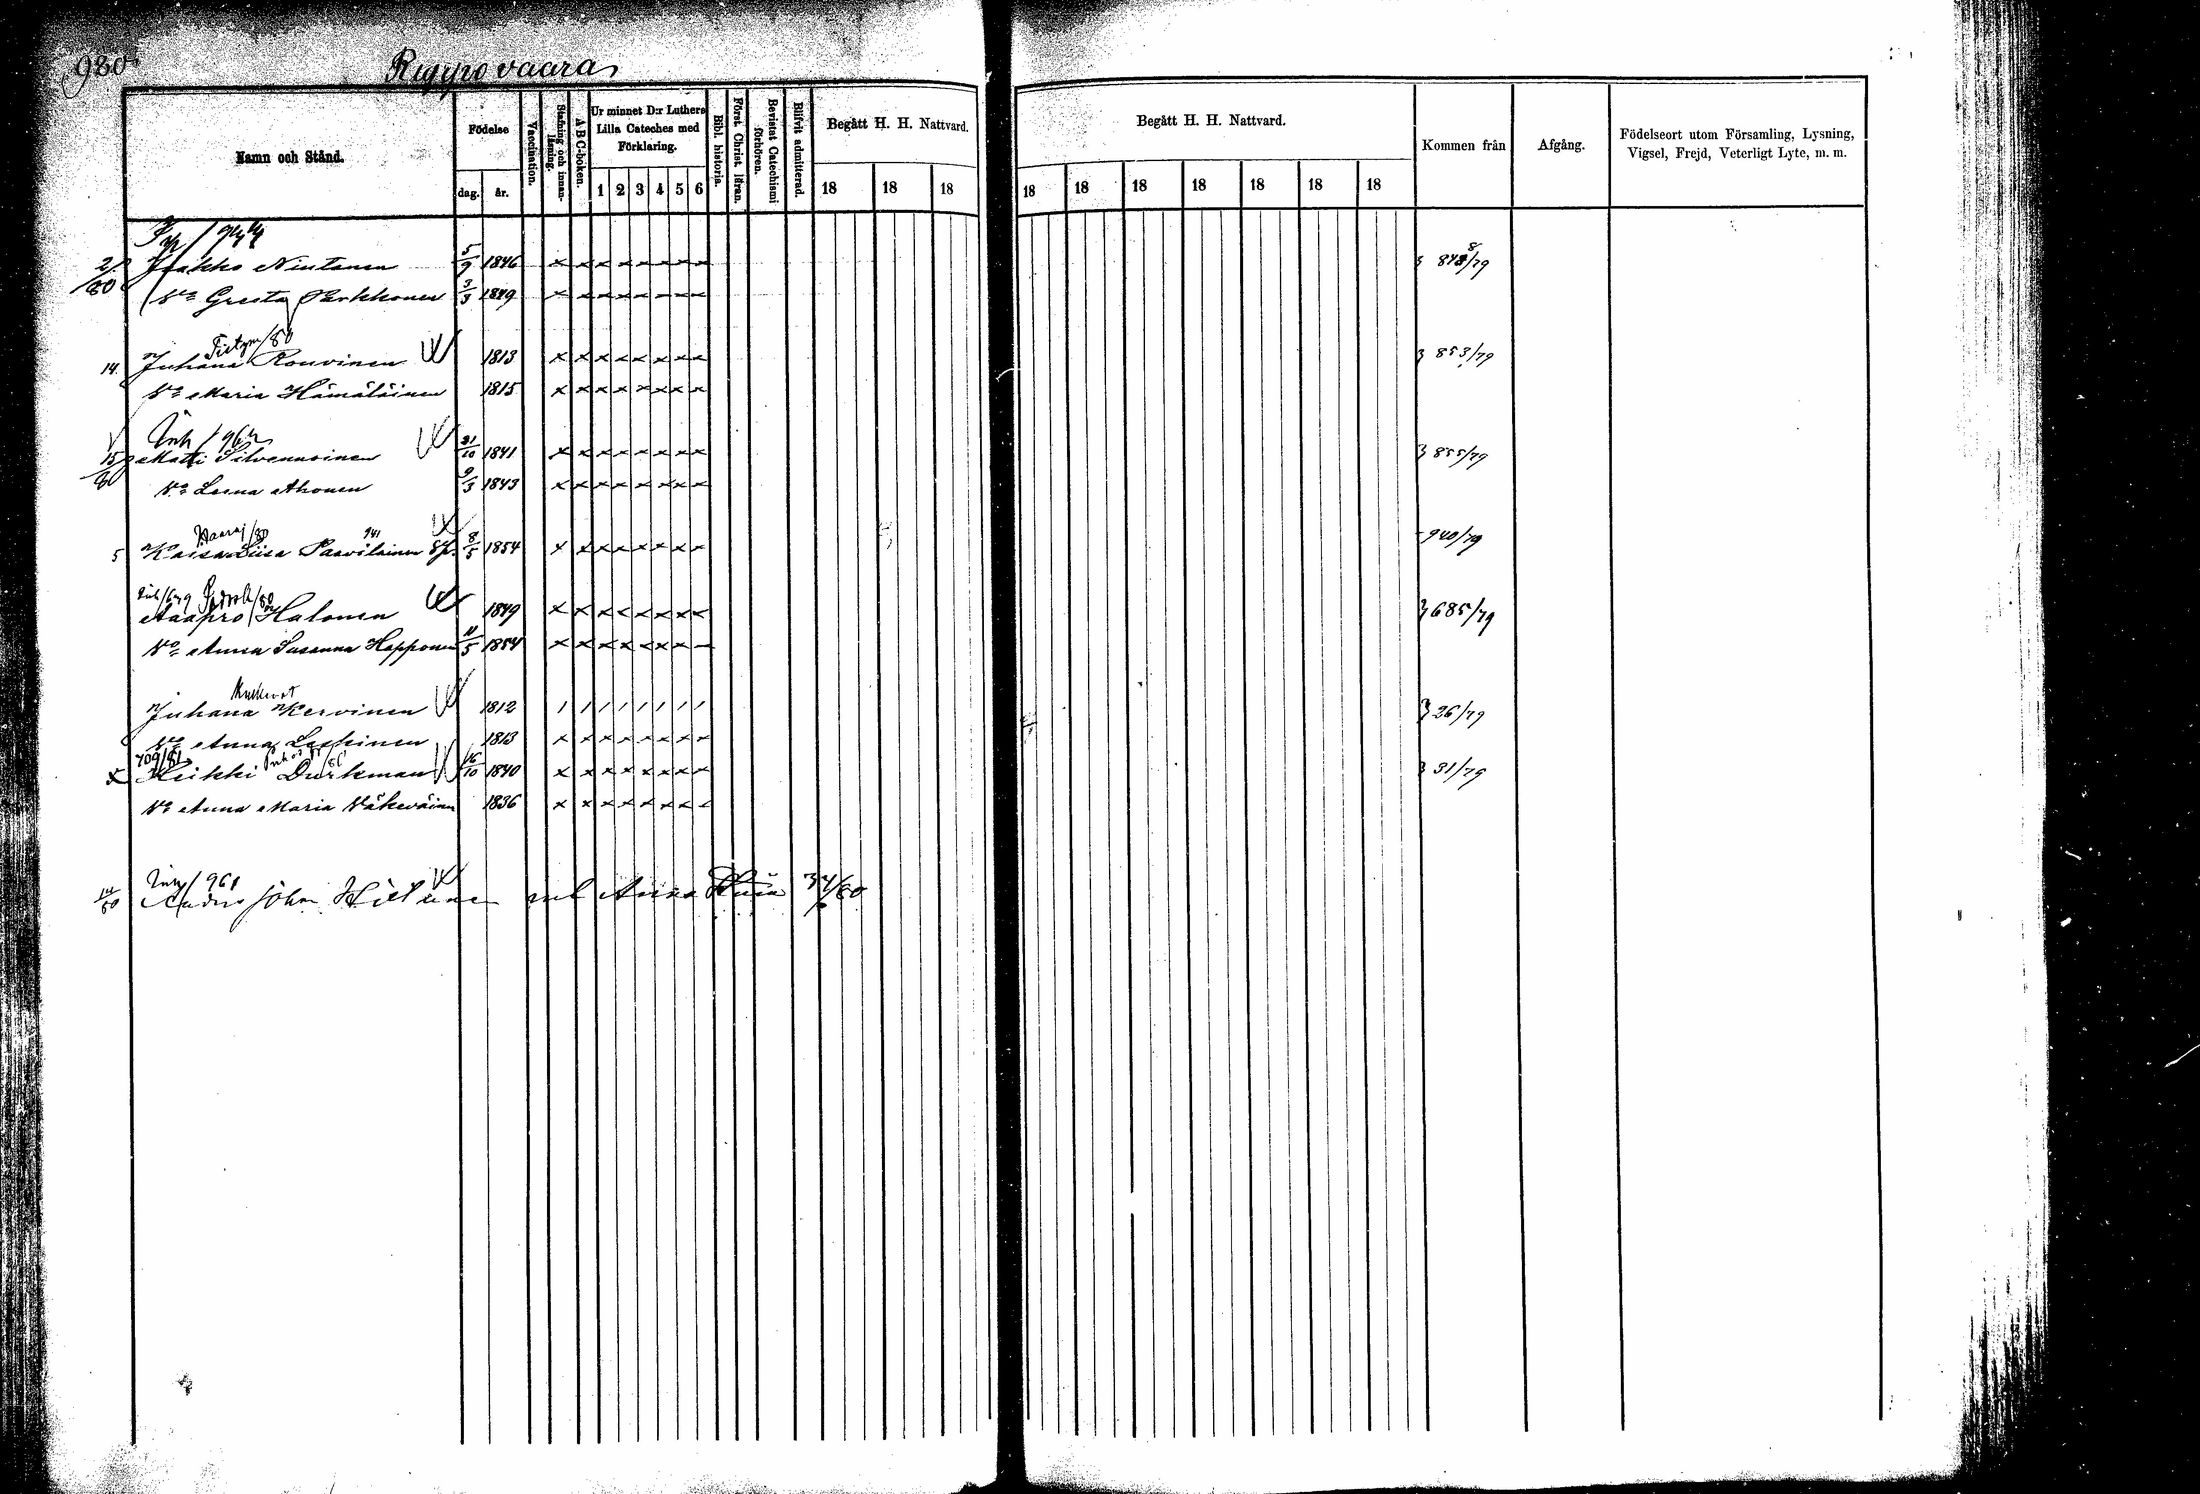 980
Ryyppövaara
Namn och Stånd.
Födelse
dag. år.
Vaccination.
Stafning och innanläsning.
A-B-C-boken.
Ur minnet D:r Luthers Lilla Cateches med Förklaring.
1 2 3 4 5 6
Bibl. historia.
Först. Christ. läran.
Bevistat Catechismi förhören.
Blifvit admitterad.
Begått H. H. Nattvard.
18 18 18
Begått H. H. Nattvard.
18 18 18 18 18 18 18
Kommen från
Afgång.
Födelseort utom Församling, Lysning, Vigsel, Frejd, Veterligt Lyte, m. m.
Jaakko Niutanen 5/9 1846 × × × × × × × ×
H:o Greeta Parkkonen 3/3 1849 × × × × × × × ×
/80
14. Juhana Rouvinen 1813 × × × × × × × × 853/79
H:o Maria Hämäläinen 1815 × × × × × × × ×
15/80 Matti Silvennoinen 21/10 1841 × × × × × × × × 855/79
H:o Leena Ahonen 9/3 1843 × × × × × × × ×
Vaaraj/80 941
5 Kaisa Liisa Paavilainen 8/5 1854 × × × × × × × × 940/79
Aapro Halonen 1849 × × × × × × × × 685/79
H:o Anna Susanna Happonen 11/5 1854 × × × × × × × ×
Juhana Kervinen 1812 / / / / / / / / 26/79
H:o Anna Leskinen 1813 × × × × × × × ×
709/81
× Heikki Durkman 16/10 1840 × × × × × × × × 31/79
H:o Anna Maria Väkeväinen 1836 × × × × × × × ×
Inh/961
14/80 Anders Johan Hiltunen